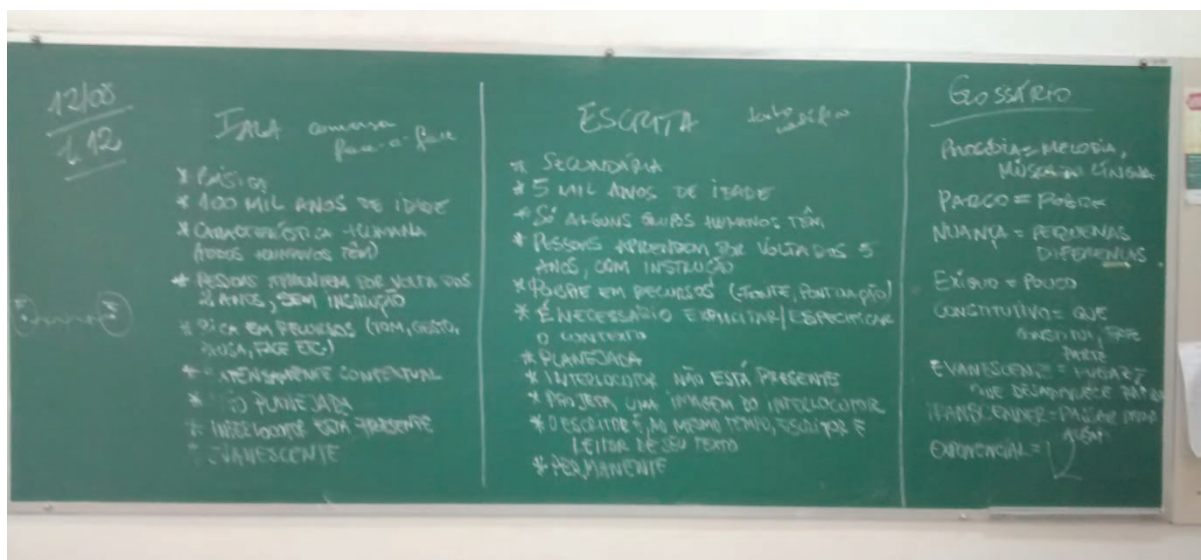 12/08
1.12
FALA conversa
face-a-face
* BÁSICA
* 100 MIL ANOS DE IDADE
* CARACTERÍSTICA HUMANA
(TODOS HUMANOS TÊM)
* PESSOAS APRENDEM POR VOLTA DOS
2 ANOS, SEM INSTRUÇÃO
* RICA EM RECURSOS (TOM, GESTO,
PAUSA, FACE ETC)
* INTENSAMENTE CONTEXTUAL
* NÃO PLANEJADA
* INTERLOCUTOR ESTÁ PRESENTE
* EVANESCENTE
ESCRITA texto
* SECUNDÁRIA
* 5 MIL ANOS DE IDADE
* SÓ ALGUNS GRUPOS HUMANOS TÊM
* PESSOAS APRENDEM POR VOLTA DOS 5
ANOS, COM INSTRUÇÃO
* POBRE EM RECURSOS (FONTE, PONTUAÇÃO)
* É NECESSÁRIO EXPLICITAR/ESPECIFICAR
O CONTEXTO
* PLANEJADA
* INTERLOCUTOR NÃO ESTÁ PRESENTE
* PROJETA UMA IMAGEM DO INTERLOCUTOR
* O ESCRITOR É, AO MESMO TEMPO, ESCRITOR E
LEITOR DE SEU TEXTO
* PERMANENTE
GLOSSÁRIO
PROSÓDIA = MELODIA,
MÚSICA DA LÍNGUA
PARCO = POBRE
NUANÇA = PEQUENAS
DIFERENÇAS
EXÍGUO = POUCO
CONSTITUTIVO = QUE
CONSTITUI, FAZ
PARTE
EVANESCENTE = FUGAZ,
QUE DESAPARECE
TRANSCENDER = PASSAR
ALÉM
EXPONENCIAL =